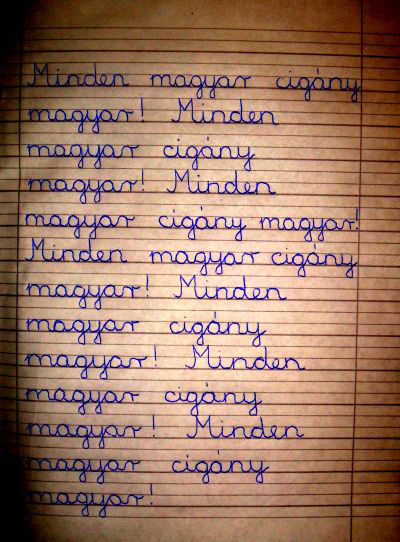 Minden magyar cigány
magyar! Minden
magyar cigány
magyar! Minden
magyar cigány magyar!
Minden magyar cigány
magyar! Minden
magyar cigány
magyar! Minden
magyar cigány
magyar! Minden
magyar cigány
magyar!